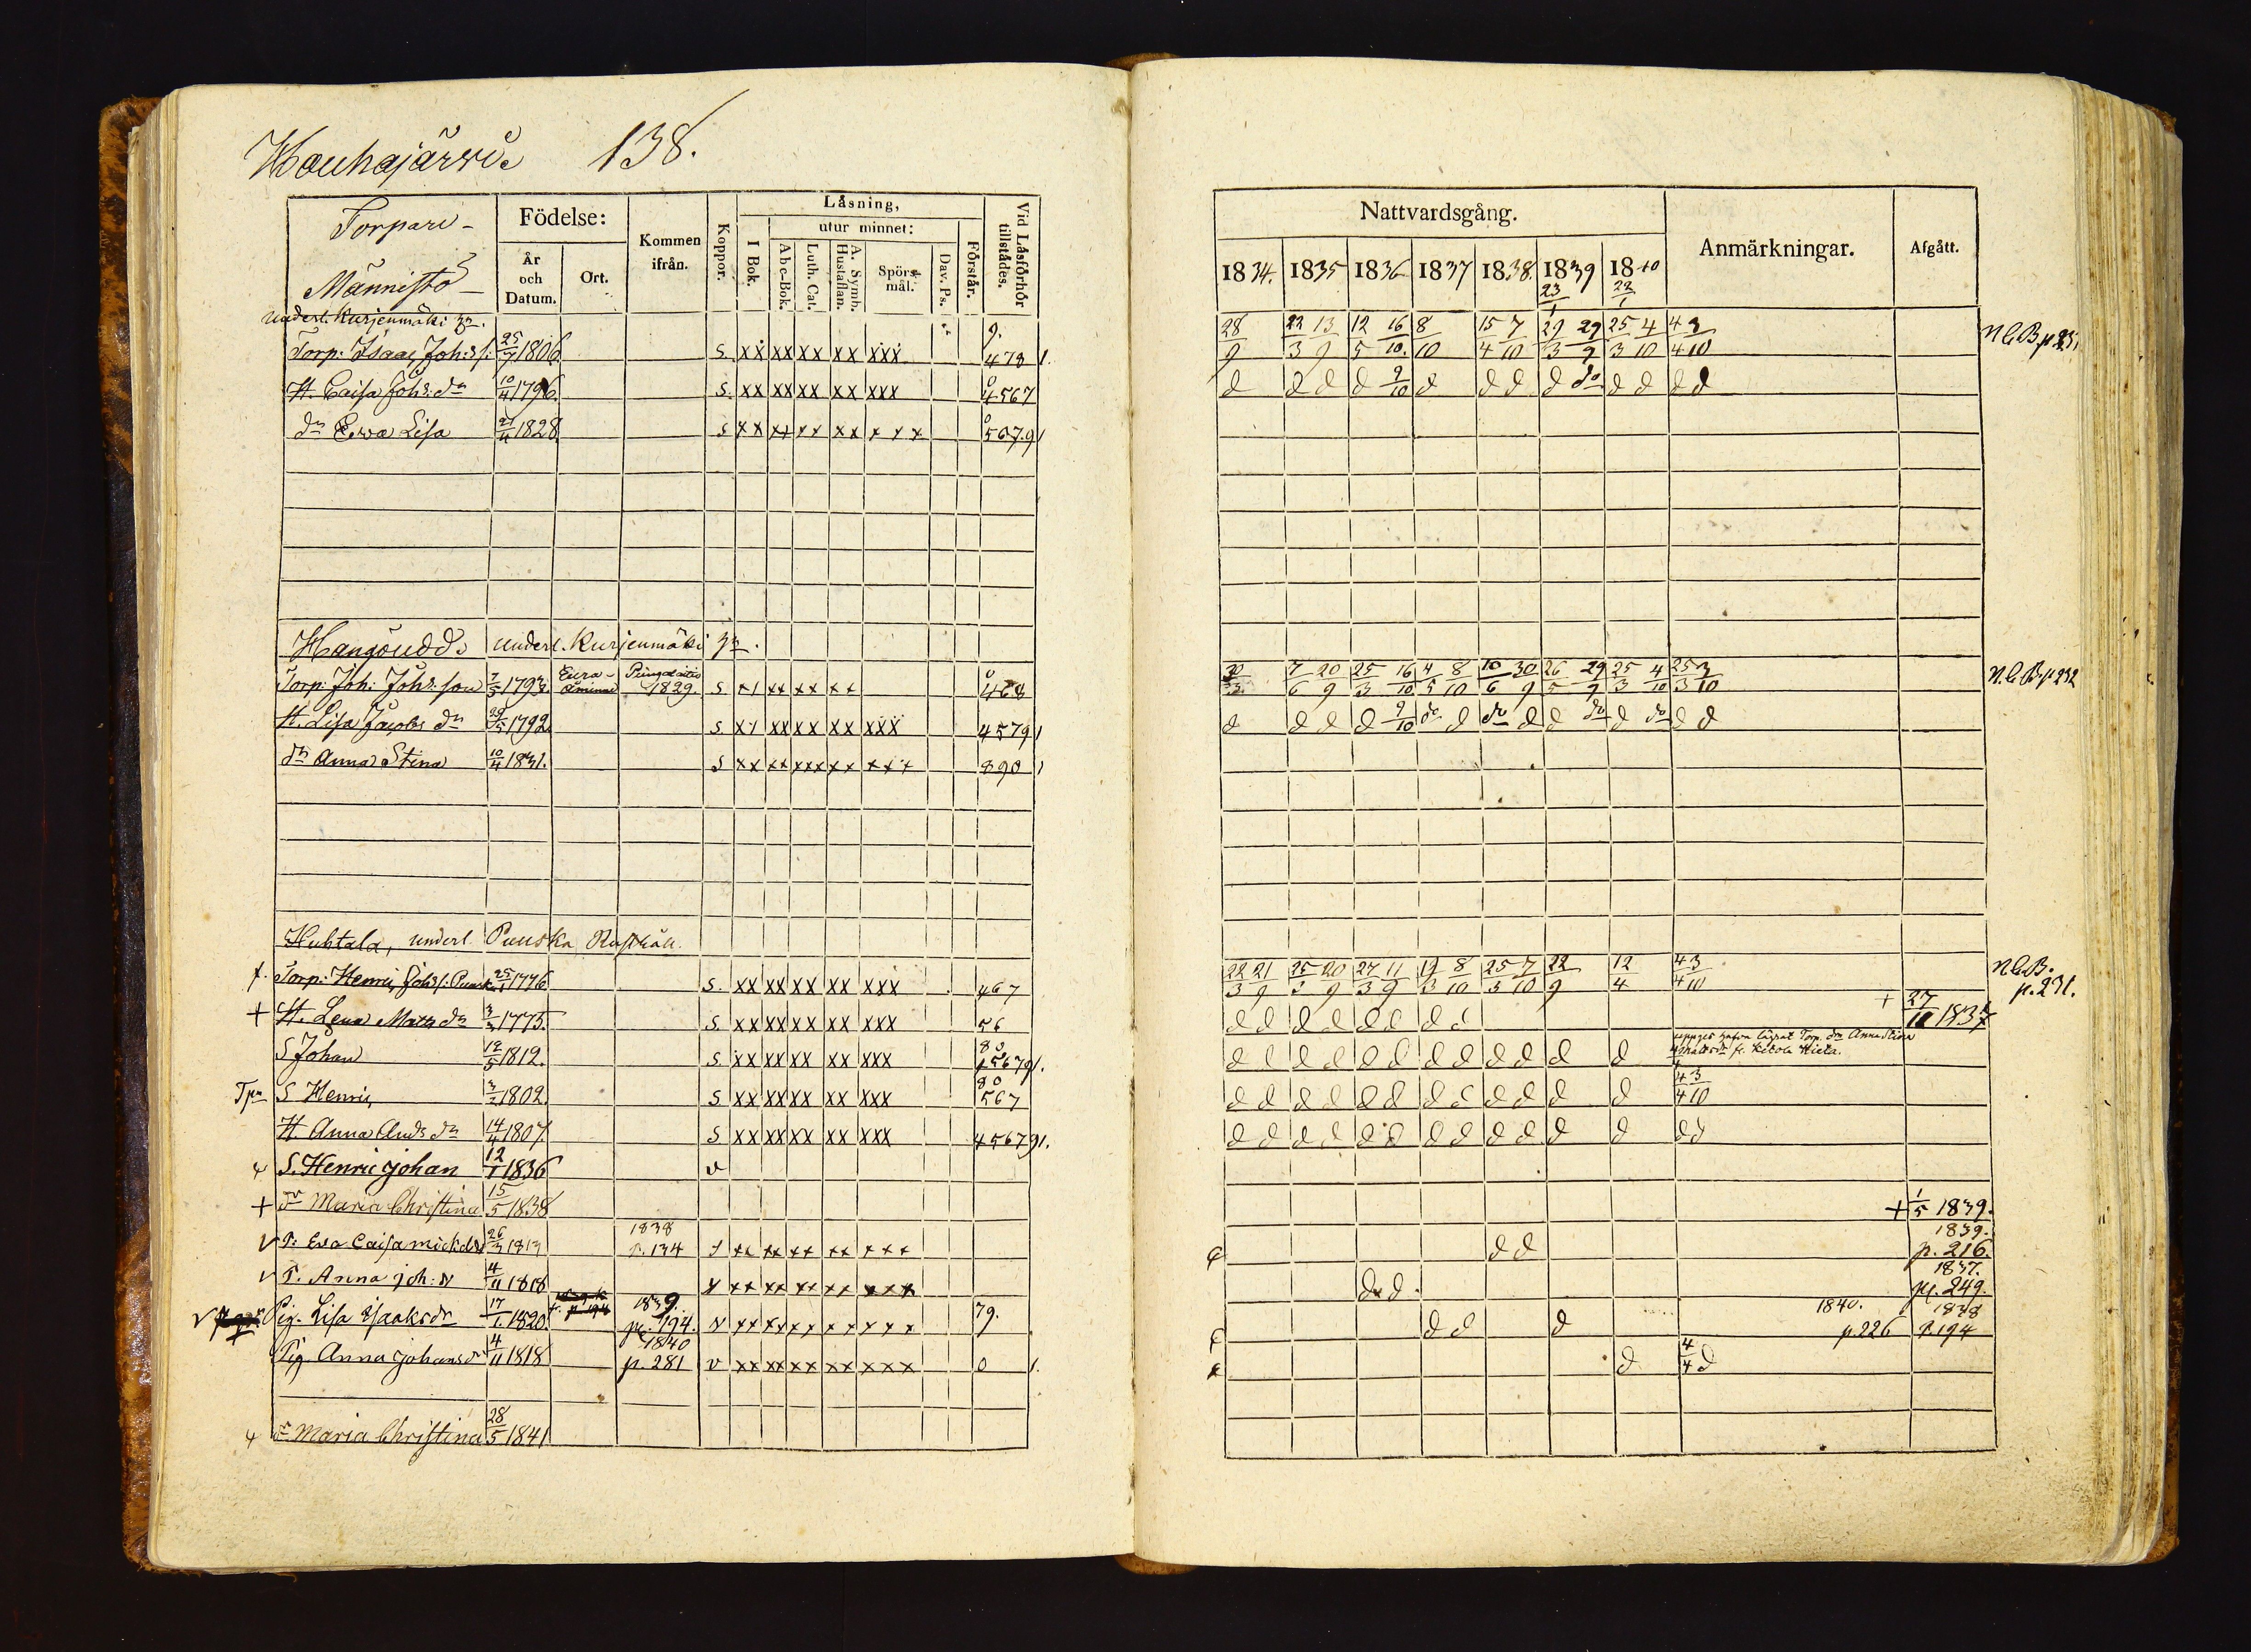 Kouhajärvi. 138.
Torpare-
Männistö
underl. Kurjenmäki
Födelse:
År och Datum.
Ort.
Kommen ifrån.
Koppor.
Läsning,
I Bok.
utur minnet:
Abc-Bok.
Luth. Cat.
A. Symb. Hustaflan.
Spörs-mål.
Dav. Ps.
Förstår.
Vid Läsförhör tillstådes.
Torp: Isaac Joh:s s. 25/7 1806 S. xx xx xx xx xxx 9. 478 1.
H. Caisa Johs: dr 10/4 1796 S. xx xx xx xx xxx 0 4567
dr Ewa Lisa 21/4 1828 S xx xx xx xx xxx 0 567.91
Hangöudd. underl. Kurjenmäki
Torp: Joh: Johs: son 7/5 1793 Eura-åminne 1829. S x1 xx xx xx 0 468
H. Lisa Jacobs dr 29/5 1792 S. x1 xx xx xx xxx 45791
dr Anna Stina 10/4 1831. S xx xx xxx xx xxx 890 1
Huhtala, underl. Punska Rusthåll.
Torp: Henric Johs s: Punska 25/1 1776 S. xx xx xx xx xxx 467
+ H. Lena Matts dr 3/3 1775. S. xx xx xx xx xxx 56
S Johan 12/5 1812. S. xx xx xx xx xxx 80 456791.
Tpr S Henric 3/2 1802. S xx xx xx xx xxx 80 567
H. Anna Ands dr 14/4 1807. S xx xx xx xx xxx 456791.
S. Henric Johan 12/1 1836 v
+ dr Maria Christina 15/5 1838
v P: Eva Caisa Mickdr 26/3 1813 1838 p. 134 xx xx xx xx xxx
v P. Anna Joh: dr 4/11 1818 xx xx xx xx xxx
v Pig. Lisa Isaaksdr 17/1 1820. 1839. p. 194. v xx xx xx xx xxx 79.
Pig. Anna Johansdr 4/11 1818 1840 p. 281 v xx xx xx xx xxx 0 1.
dr Maria Christina 28/5 1841
Nattvardsgång.
Anmärkningar.
Afgått.
1834. 1835 1836 1837 1838 1839 23/1 1840 22/1
28/9 22/3 13/9 12/5 16/10. 8/10 15/4 7/10 29/3 29/9 25/3 4/10 4/4 3/10 N.C.B. p 231
d d d d 9/10 d d d d do d d d d
30/3 7/6 20/9 25/3 16/10 4/5 8/10 10/6 30/9 26/5 29/9 25/3 4/10 25/3 3/10 N.C.B. p 232
d d d d 9/10 do d do d d do d do d d
22/3 21/9 25/3 20/9 27/3 11/9 19/3 8/10 25/3 7/10 22/9 12/4 4/4 3/10 N.C.B. p. 231.
d d d d d d d d + 27/10 1837
d d d d d d d d d d d d uppges hafva lägrat Torp. dr Anna Stina
fr. Kitola Hieta.
d d d d d d d d d d d d 4/4 3/10
d d d d d d d d d d d d d d
+ 1/5 1839.
d d 1839. p. 216.
d d. 1837. p. 249.
d d d 1840. p. 226 1838 p. 194
d 4/4 d